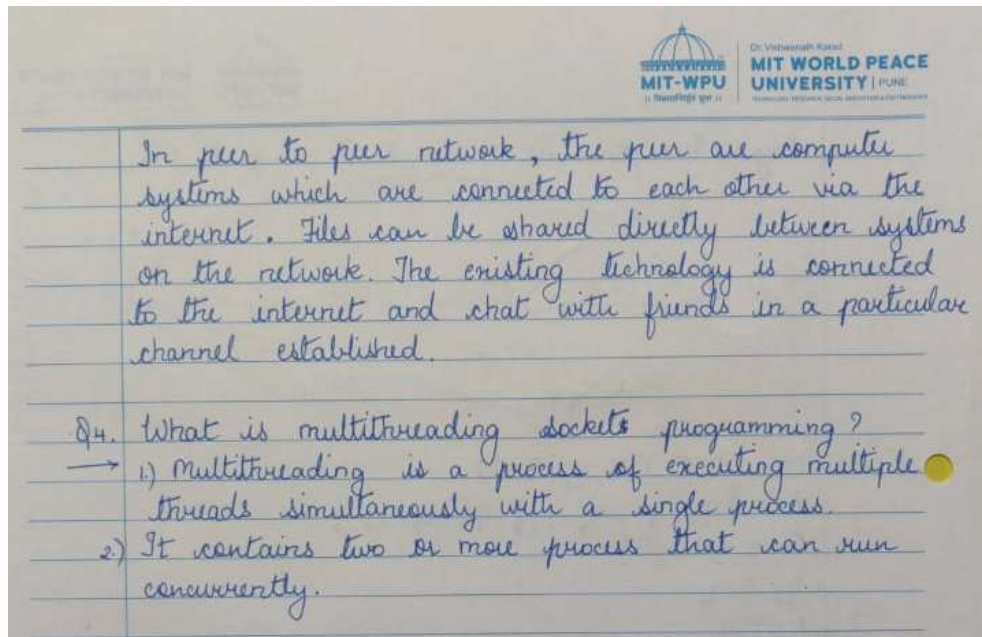 Dr. Vishwanath Karad
MIT WORLD PEACE
UNIVERSITY | PUNE
MIT-WPU
In peer to peer network, the peer are computer
systems which are connected to each other via the
internet. Files can be shared directly between systems
on the network. The existing technology is connected
to the internet and chat with friends in a particular
channel established.
Q4. What is multithreading sockets programming?
→ 1.) Multithreading is a process of executing multiple
threads simultaneously with a single process.
2.) It contains two or more process that can run
concurrently.